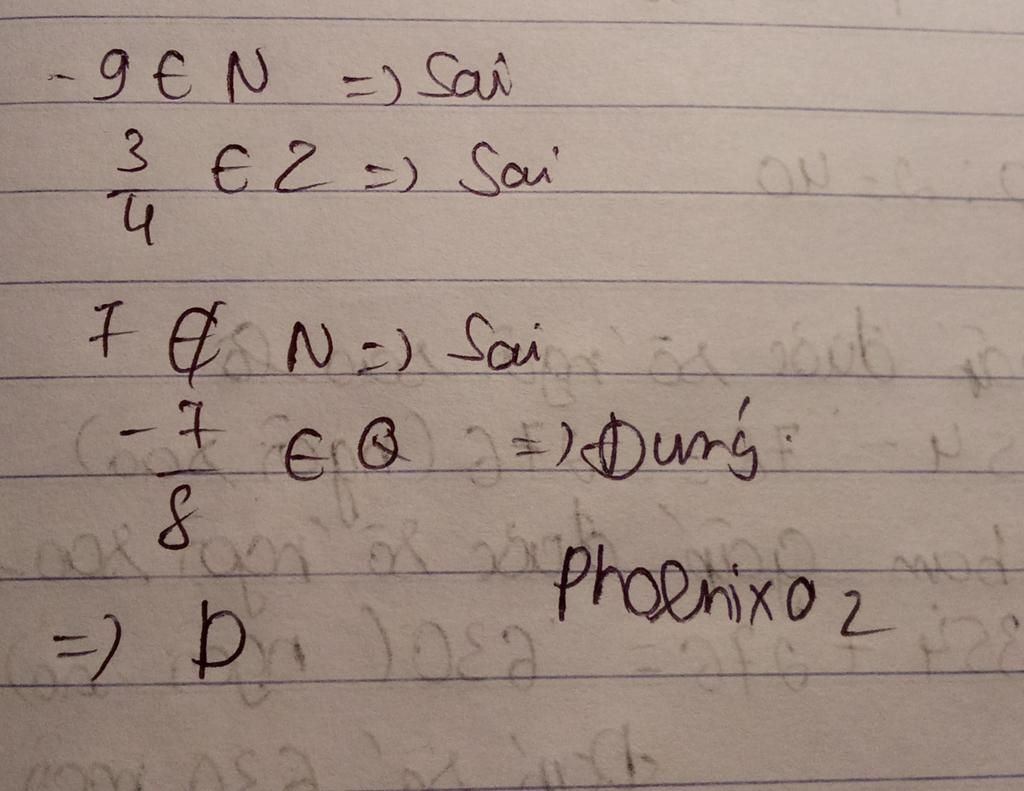 -9 ∈ N => Sai
3/4 ∈ Z => Sai
7 ∉ N => Sai
-7/8 ∈ Q => Đúng.
Phoenix02
=> D